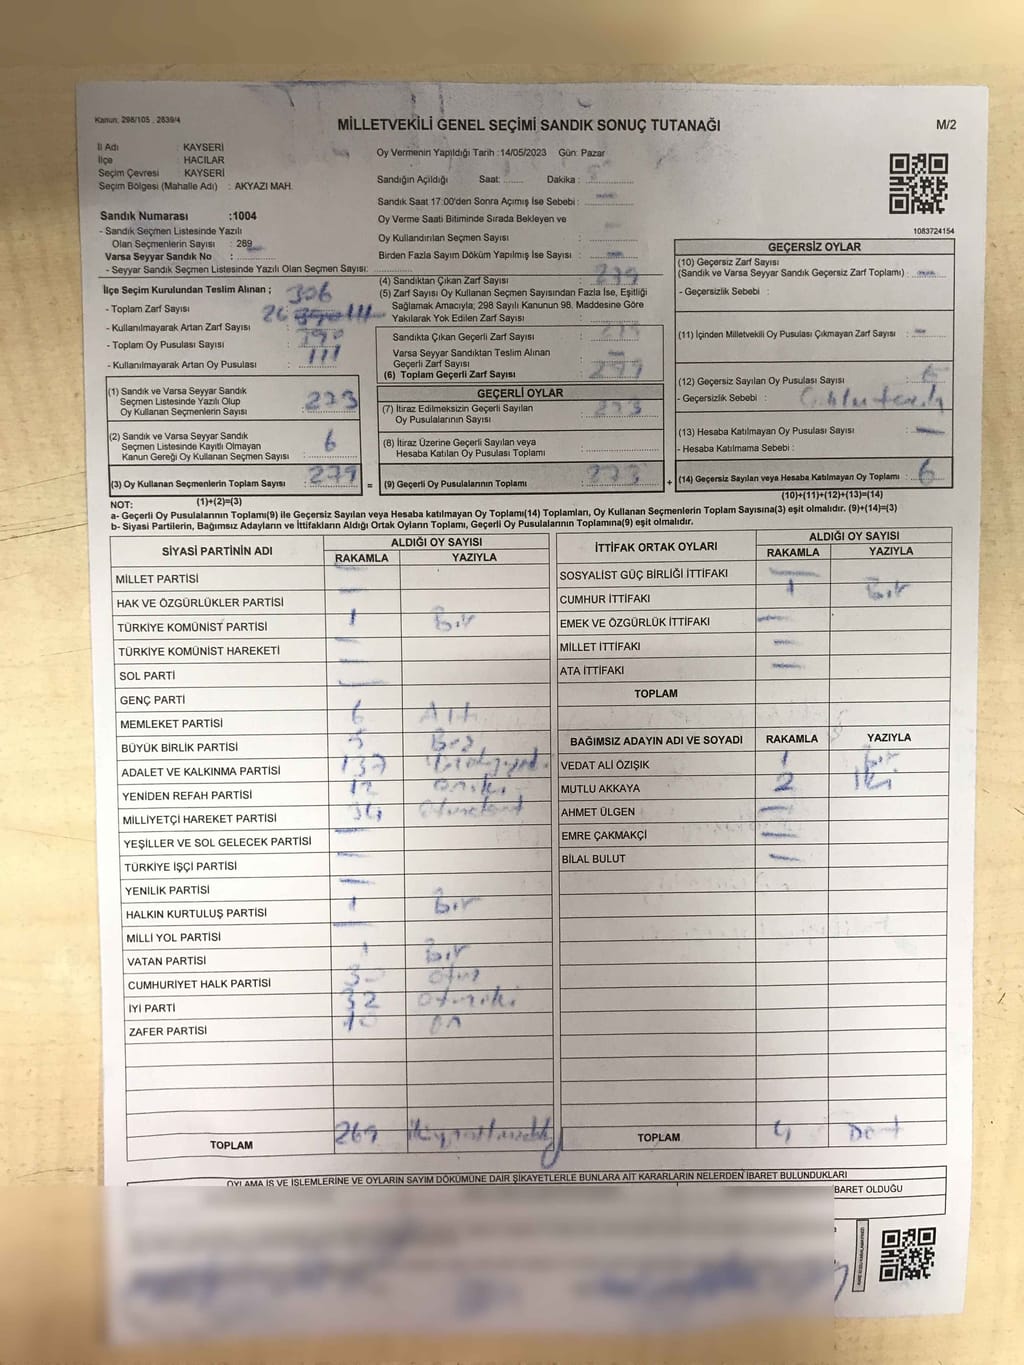 Kanun: 298/105 , 2839/4
MİLLETVEKİLİ GENEL SEÇİMİ SANDIK SONUÇ TUTANAĞI
M/2
İl Adı : KAYSERİ
İlçe : HACILAR
Seçim Çevresi : KAYSERİ
Seçim Bölgesi (Mahalle Adı) : AKYAZI MAH.
Oy Vermenin Yapıldığı Tarih :14/05/2023 Gün: Pazar
Sandığın Açıldığı Saat: Dakika :
Sandık Saat 17:00'den Sonra Açımış İse Sebebi :
Oy Verme Saati Bitiminde Sırada Bekleyen ve
Oy Kullandırılan Seçmen Sayısı :
Birden Fazla Sayım Döküm Yapılmış İse Sayısı :
1083724154
Sandık Numarası :1004
- Sandık Seçmen Listesinde Yazılı
Olan Seçmenlerin Sayısı : 289
Varsa Seyyar Sandık No :
- Seyyar Sandık Seçmen Listesinde Yazılı Olan Seçmen Sayısı:
İlçe Seçim Kurulundan Teslim Alınan ;
- Toplam Zarf Sayısı : 306
- Kullanılmayarak Artan Zarf Sayısı :
- Toplam Oy Pusulası Sayısı :
- Kullanılmayarak Artan Oy Pusulası : 111
(1) Sandık ve Varsa Seyyar Sandık
Seçmen Listesinde Yazılı Olup
Oy Kullanan Seçmenlerin Sayısı : 273
(2) Sandık ve Varsa Seyyar Sandık
Seçmen Listesinde Kayıtlı Olmayan
Kanun Gereği Oy Kullanan Seçmen Sayısı : 6
(3) Oy Kullanan Seçmenlerin Toplam Sayısı : 279
(1)+(2)=(3)
(4) Sandıktan Çıkan Zarf Sayısı : 279
(5) Zarf Sayısı Oy Kullanan Seçmen Sayısından Fazla İse, Eşitliği
Sağlamak Amacıyla; 298 Sayılı Kanunun 98. Maddesine Göre
Yakılarak Yok Edilen Zarf Sayısı :
Sandıkta Çıkan Geçerli Zarf Sayısı : 279
Varsa Seyyar Sandıktan Teslim Alınan
Geçerli Zarf Sayısı :
(6) Toplam Geçerli Zarf Sayısı : 279
GEÇERLİ OYLAR
(7) İtiraz Edilmeksizin Geçerli Sayılan
Oy Pusulalarının Sayısı : 273
(8) İtiraz Üzerine Geçerli Sayılan veya
Hesaba Katılan Oy Pusulası Toplamı :
= (9) Geçerli Oy Pusulalarının Toplamı : 273 +
GEÇERSİZ OYLAR
(10) Geçersiz Zarf Sayısı
(Sandık ve Varsa Seyyar Sandık Geçersiz Zarf Toplamı) :
- Geçersizlik Sebebi :
(11) İçinden Milletvekili Oy Pusulası Çıkmayan Zarf Sayısı :
(12) Geçersiz Sayılan Oy Pusulası Sayısı : 6
- Geçersizlik Sebebi :
(13) Hesaba Katılmayan Oy Pusulası Sayısı :
- Hesaba Katılmama Sebebi :
(14) Geçersiz Sayılan veya Hesaba Katılmayan Oy Toplamı : 6
(10)+(11)+(12)+(13)=(14)
NOT:
a- Geçerli Oy Pusulalarının Toplamı(9) ile Geçersiz Sayılan veya Hesaba katılmayan Oy Toplamı(14) Toplamları, Oy Kullanan Seçmenlerin Toplam Sayısına(3) eşit olmalıdır. (9)+(14)=(3)
b- Siyasi Partilerin, Bağımsız Adayların ve İttifakların Aldığı Ortak Oyların Toplamı, Geçerli Oy Pusulalarının Toplamına(9) eşit olmalıdır.
SİYASİ PARTİNİN ADI ALDIĞI OY SAYISI
RAKAMLA YAZIYLA
MİLLET PARTİSİ
HAK VE ÖZGÜRLÜKLER PARTİSİ
TÜRKİYE KOMÜNİST PARTİSİ 1 Bir
TÜRKİYE KOMÜNİST HAREKETİ
SOL PARTİ
GENÇ PARTİ
MEMLEKET PARTİSİ 6 Altı
BÜYÜK BİRLİK PARTİSİ 5 Beş
ADALET VE KALKINMA PARTİSİ 137
YENİDEN REFAH PARTİSİ 12 Oniki
MİLLİYETÇİ HAREKET PARTİSİ 34 Otuzdört
YEŞİLLER VE SOL GELECEK PARTİSİ
TÜRKİYE İŞÇİ PARTİSİ
YENİLİK PARTİSİ
HALKIN KURTULUŞ PARTİSİ 1 Bir
MİLLİ YOL PARTİSİ
VATAN PARTİSİ 1 Bir
CUMHURİYET HALK PARTİSİ 30 Otuz
İYİ PARTİ 32 Otuziki
ZAFER PARTİSİ 10 On
TOPLAM 269
İTTİFAK ORTAK OYLARI ALDIĞI OY SAYISI
RAKAMLA YAZIYLA
SOSYALİST GÜÇ BİRLİĞİ İTTİFAKI
CUMHUR İTTİFAKI 1 Bir
EMEK VE ÖZGÜRLÜK İTTİFAKI
MİLLET İTTİFAKI
ATA İTTİFAKI
TOPLAM
BAĞIMSIZ ADAYIN ADI VE SOYADI RAKAMLA YAZIYLA
VEDAT ALİ ÖZIŞIK 1 Bir
MUTLU AKKAYA 2 İki
AHMET ÜLGEN
EMRE ÇAKMAKÇİ
BİLAL BULUT
TOPLAM 4 Dört
OYLAMA İŞ VE İŞLEMLERİNE VE OYLARIN SAYIM DÖKÜMÜNE DAİR ŞİKAYETLERLE BUNLARA AİT KARARLARIN NELERDEN İBARET BULUNDUKLARI
BARET OLDUĞU